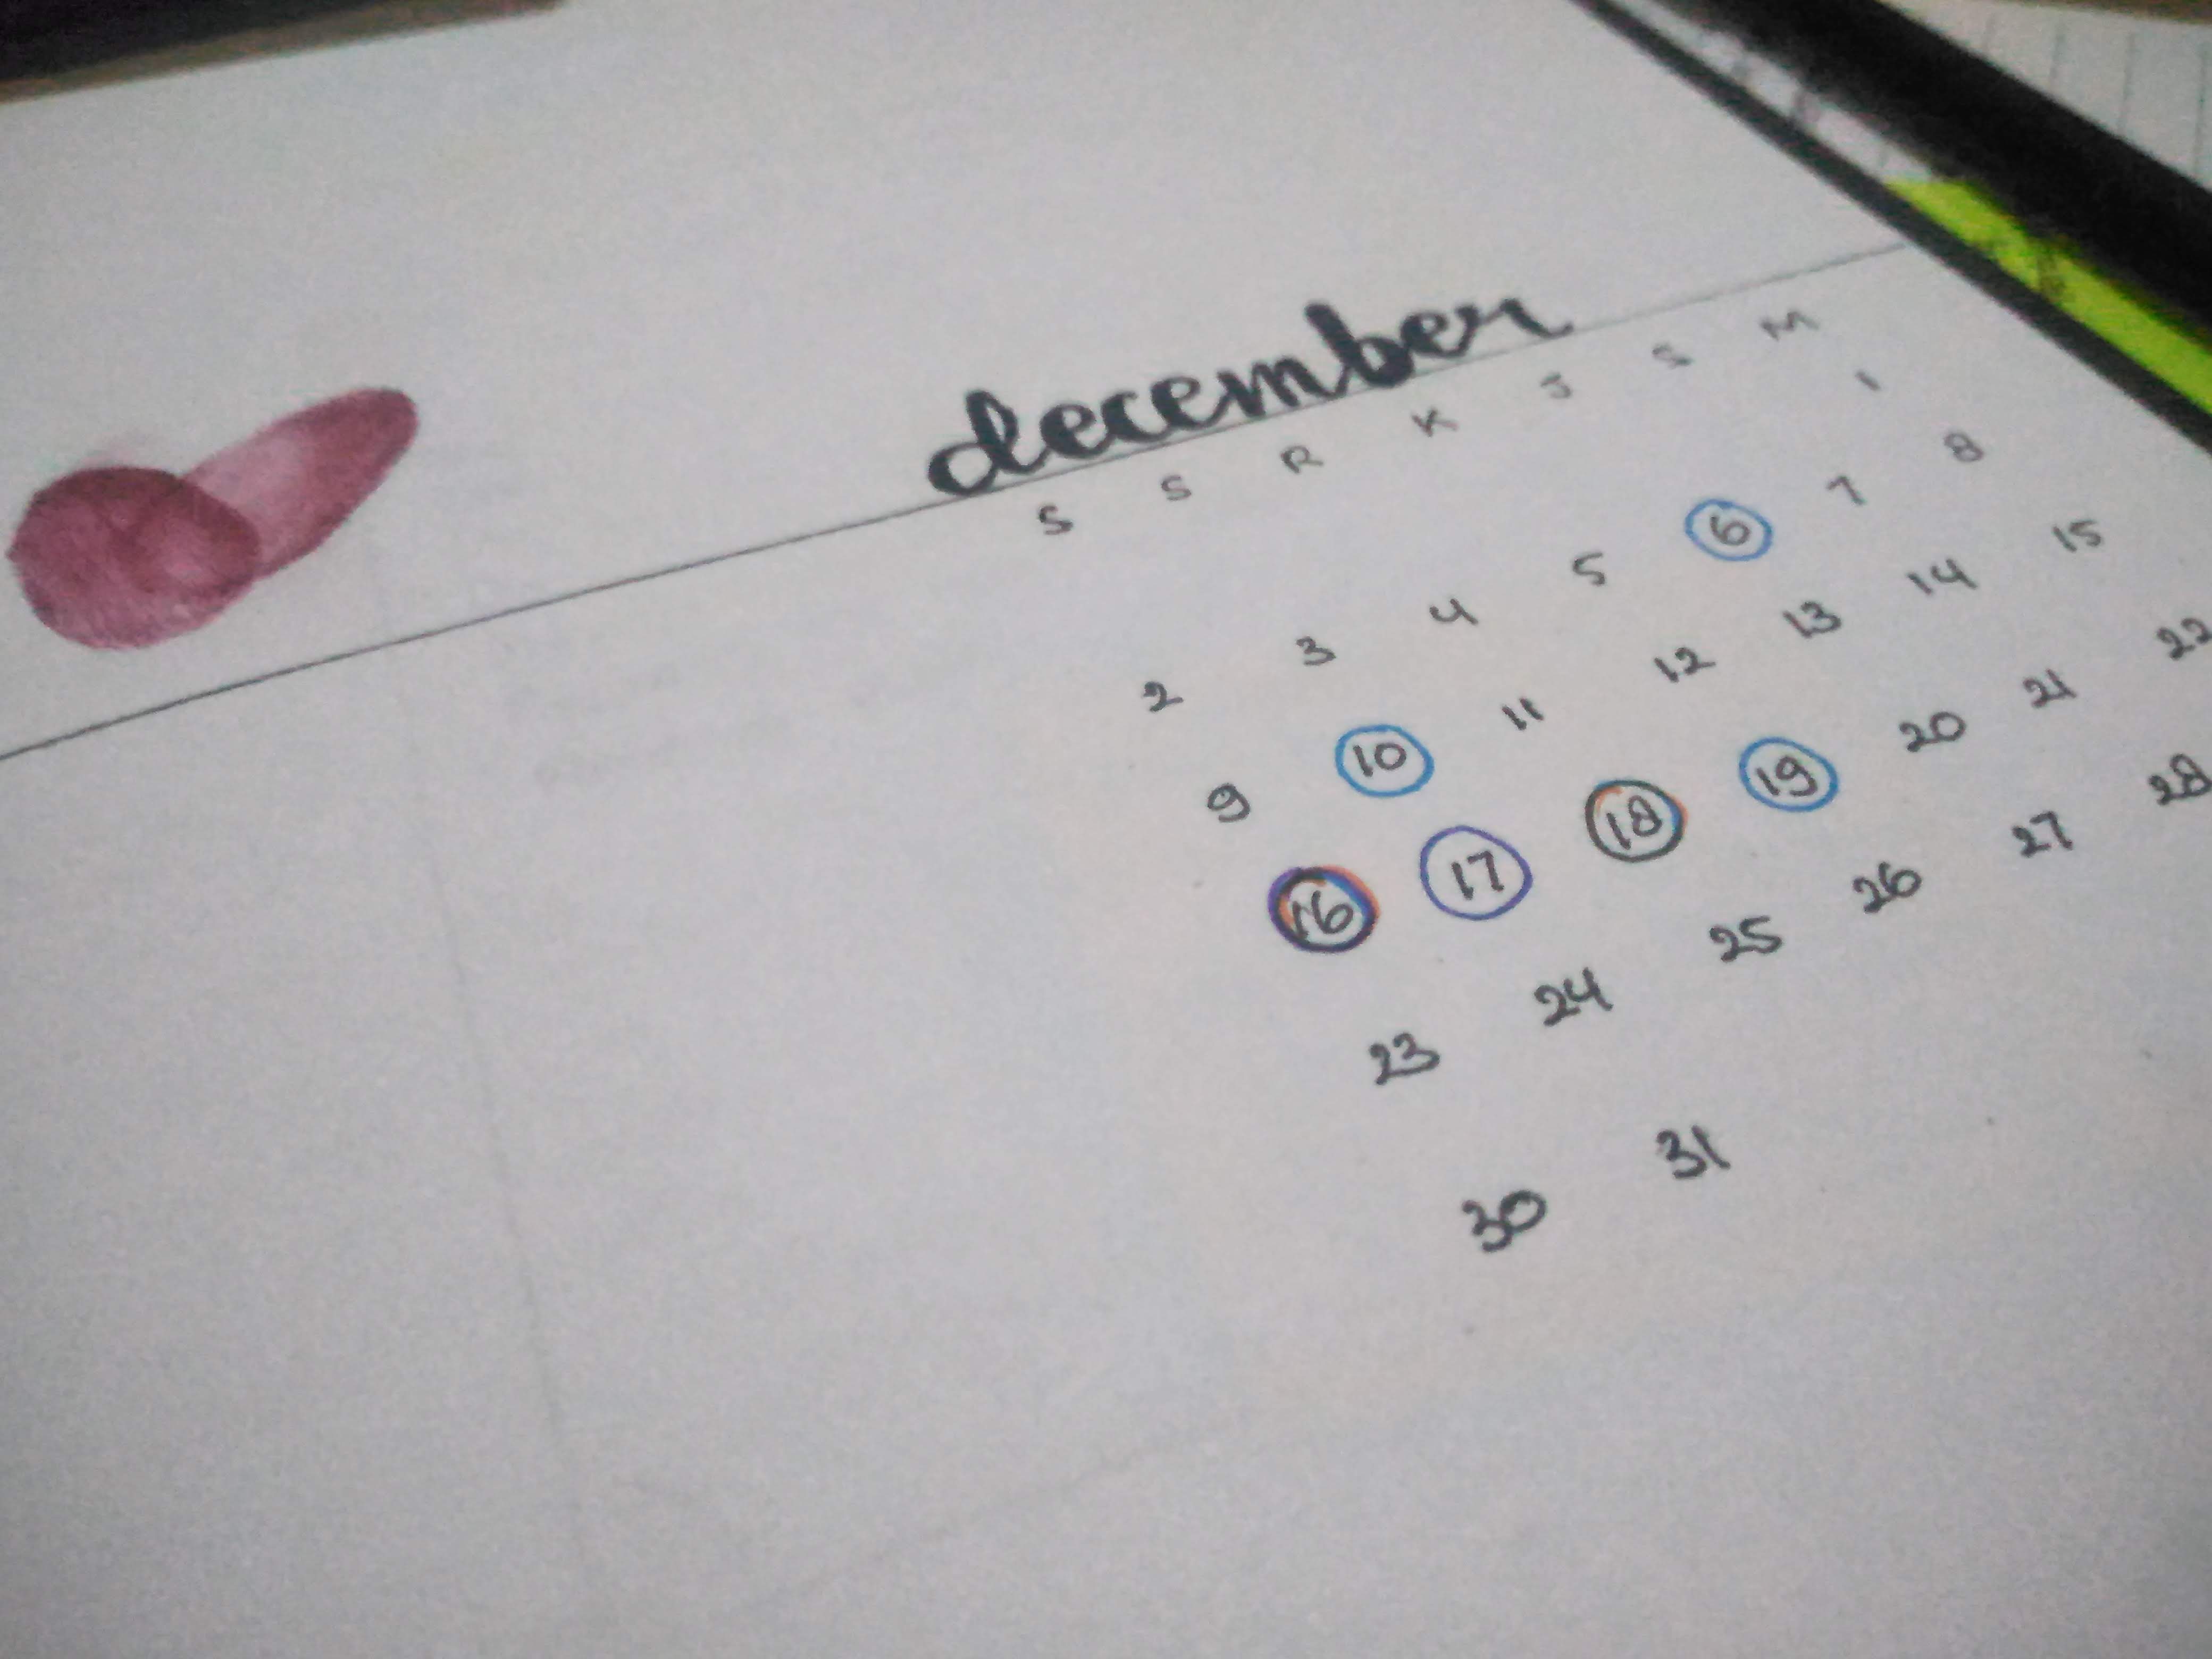 december
S S R K J S M
1
2 3 4 5 6 7 8
9 10 11 12 13 14 15
16 17 18 19 20 21 22
23 24 25 26 27 28
30 31